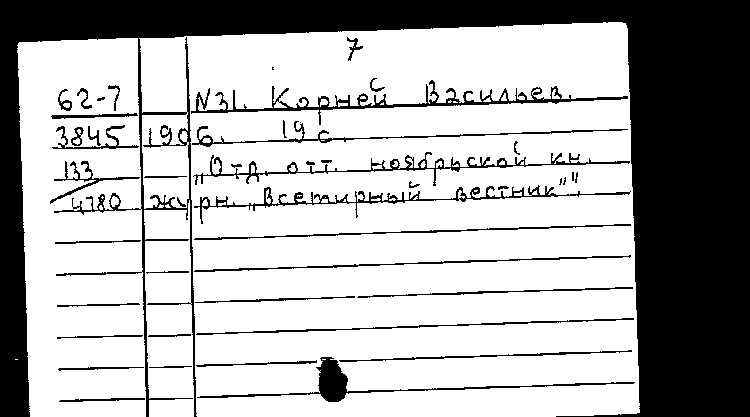 7
62-7 N31. Корней Васильев.
3845 1906. 19 с.
133 „Отд. отт. ноябрьской кн.
4780 журн. „Всемирный вестник"".